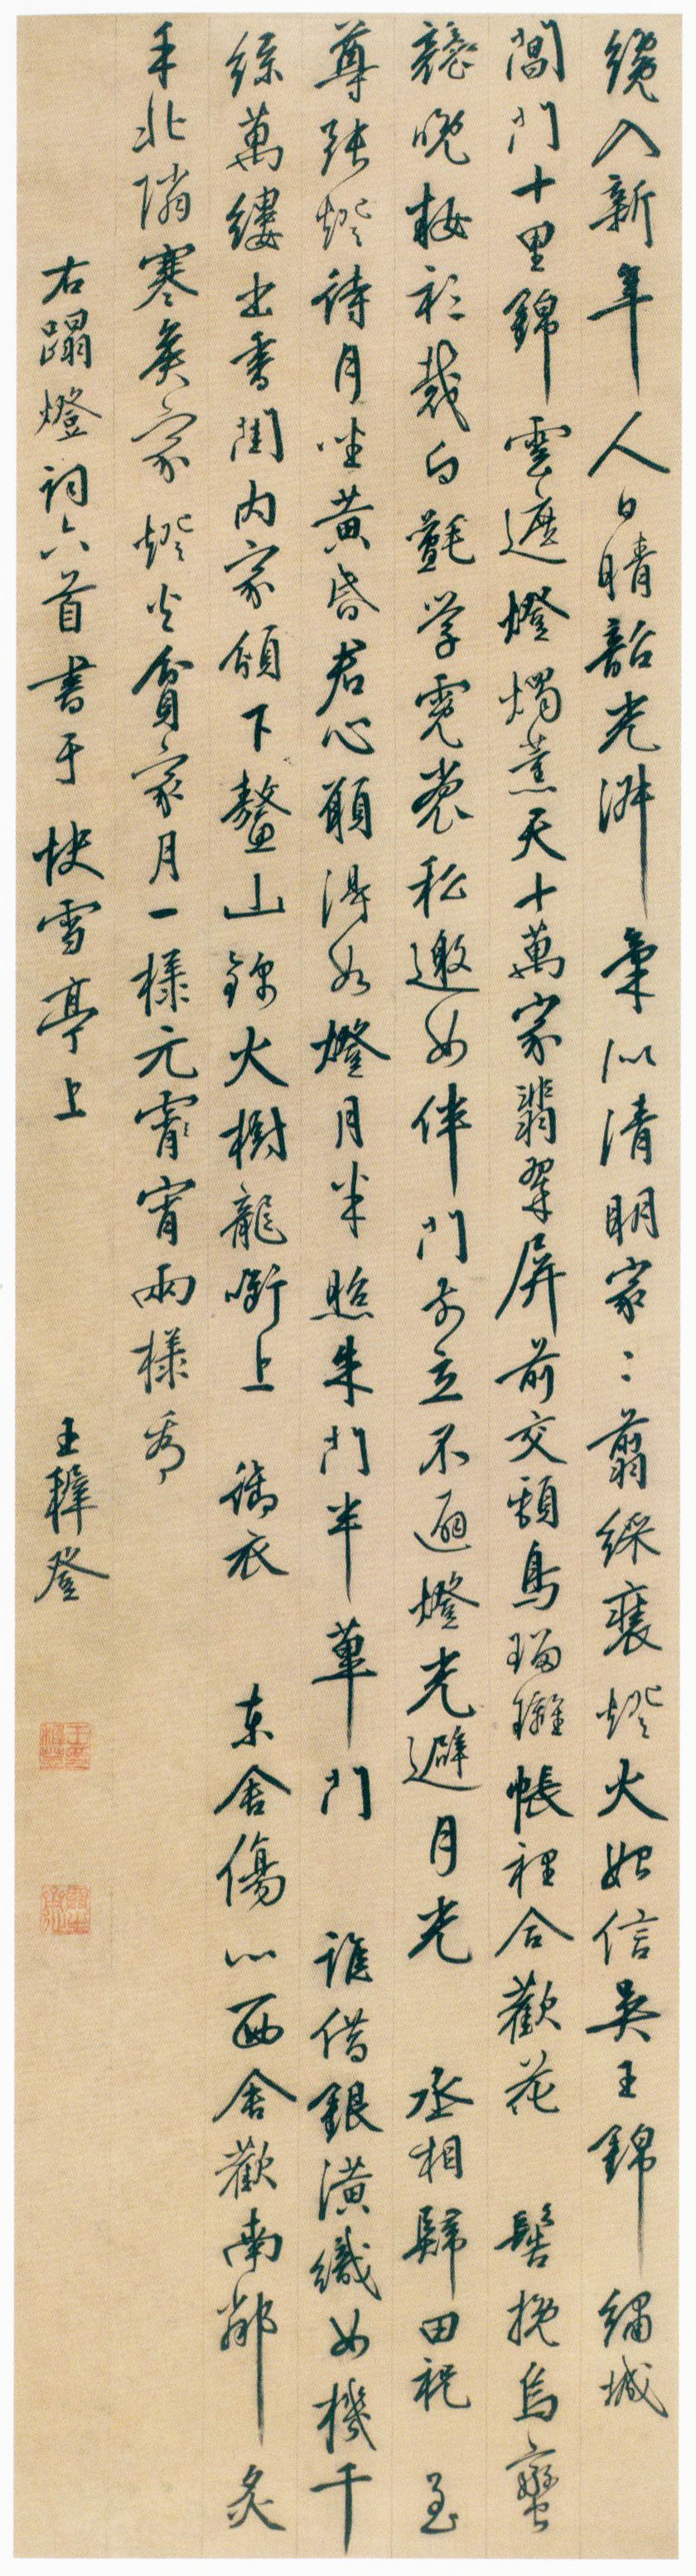 纔入新年人日晴韶光淑氣似清明家〻翦綵裹燈火始信吳王錦繡城
閶門十里錦雲遮燈燭薰天十萬家翡翠屏前交頸鳥瑠璃帳裡合歡花 髻挽烏蠻
競晚粧衫裁白氎學霓裳私邀女伴門前立不迴燈光避月光 丞相歸田祀至
尊張燈待月坐黃昏君心願得如燈月半照朱門半蓽門 誰借銀潢織女機千
絲萬縷出香閨內家頒下鰲山錦火樹龍啣上繡衣 東舍傷心西舍歡南鄰炙
手北鄰寒矦家燈火貧家月一樣元宵宵兩樣看
右蹋燈詞六首書于快雪亭上 王穉登